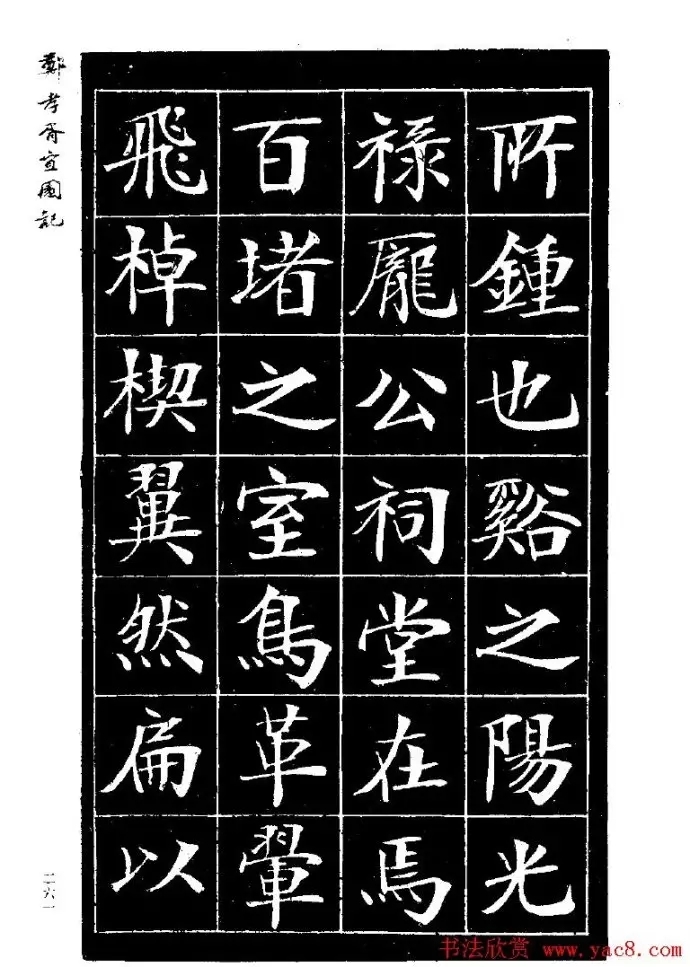 鄭孝胥宣園記
所鍾也谿之陽光
祿龐公祠堂在焉
百堵之室鳥革翬
飛棹楔翼然扁以
二六一
书法欣赏 www.yac8.com